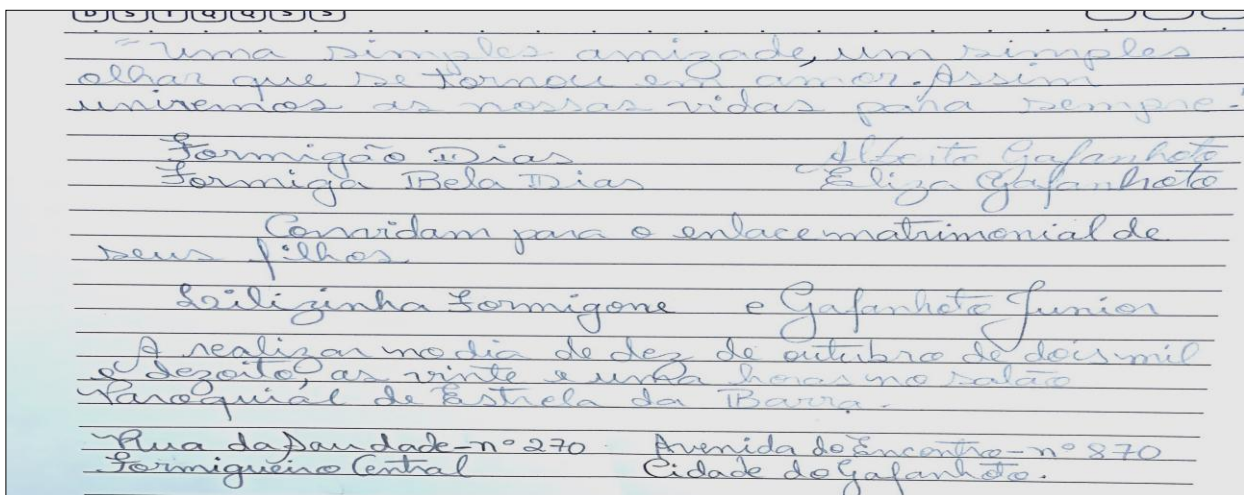 D S T Q Q S S
"Uma simples amizade, um simples
olhar que se tornou em amor. Assim
uniremos as nossas vidas para sempre."
Formigão Dias Alberto Gafanhoto
Formiga Bela Dias Eliza Gafanhoto
Convidam para o enlace matrimonial de
seus filhos
Lilizinha Formigone e Gafanhoto Junior
A realizar no dia de dez de outubro de dois mil
e dezoito, as vinte e uma horas no salão
Paroquial de Estrela da Barra.
Rua da Saudade - nº 270 Avenida do Encontro - nº 870
Formigueiro Central Cidade do Gafanhoto.